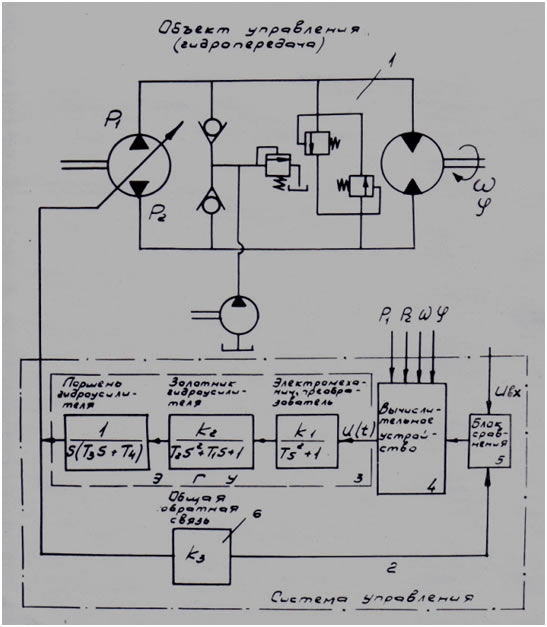 Объект управления
(гидропередача)
1
P1
P2
ω
φ
P1 P2 ω φ
Uвх
Поршень
гидроусили-
теля
Золотник
гидроусили-
теля
Электромеха-
нич. преобра-
зователь
1
S(T3S+T4)
K2
T2S²+T1S+1
K1
TS²+1
U(t)
Вычисли-
тельное
устрой-
ство
4
Блок
срав-
нения
5
Э Г У
3
Общая
обратная
связь
6
K3
2
Система управления